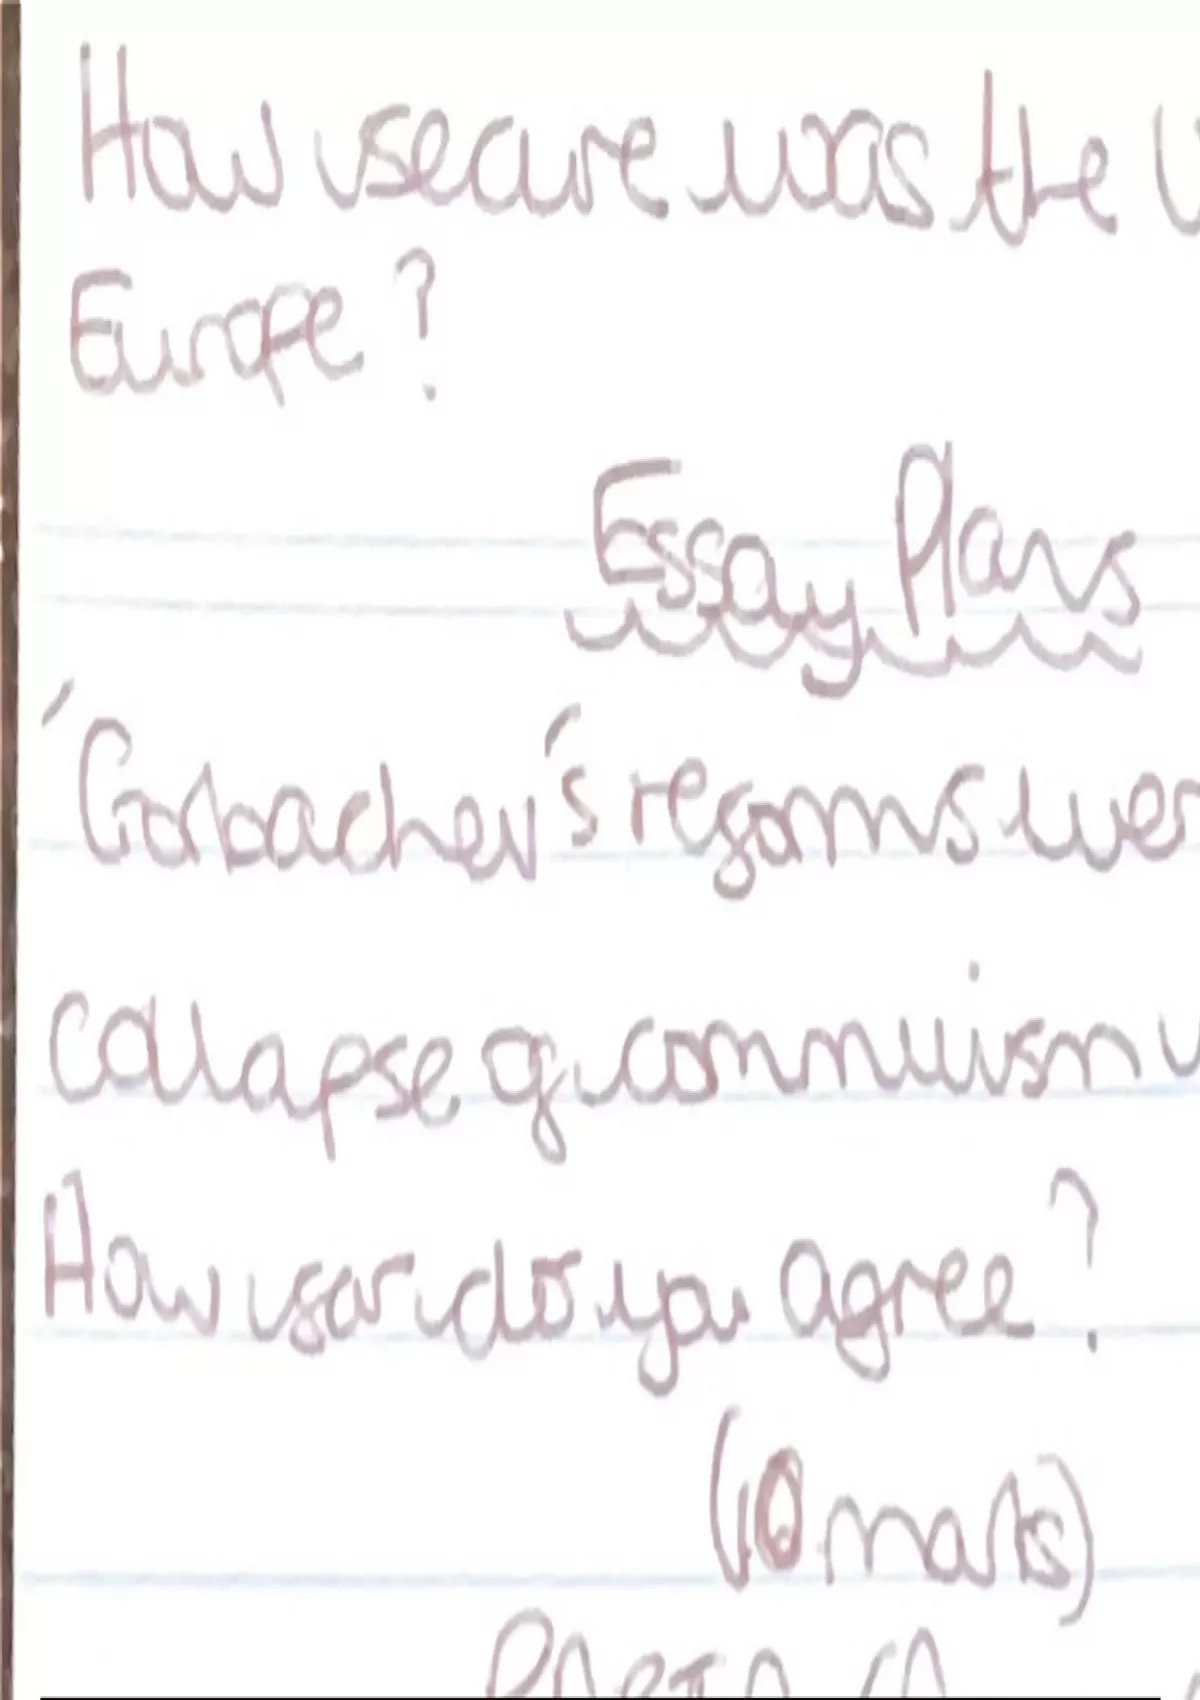 How secure was the
Europe?
Essay Plans
'Gorbachev's reforms wer
collapse of communism
How far do you agree?
(10 marks)